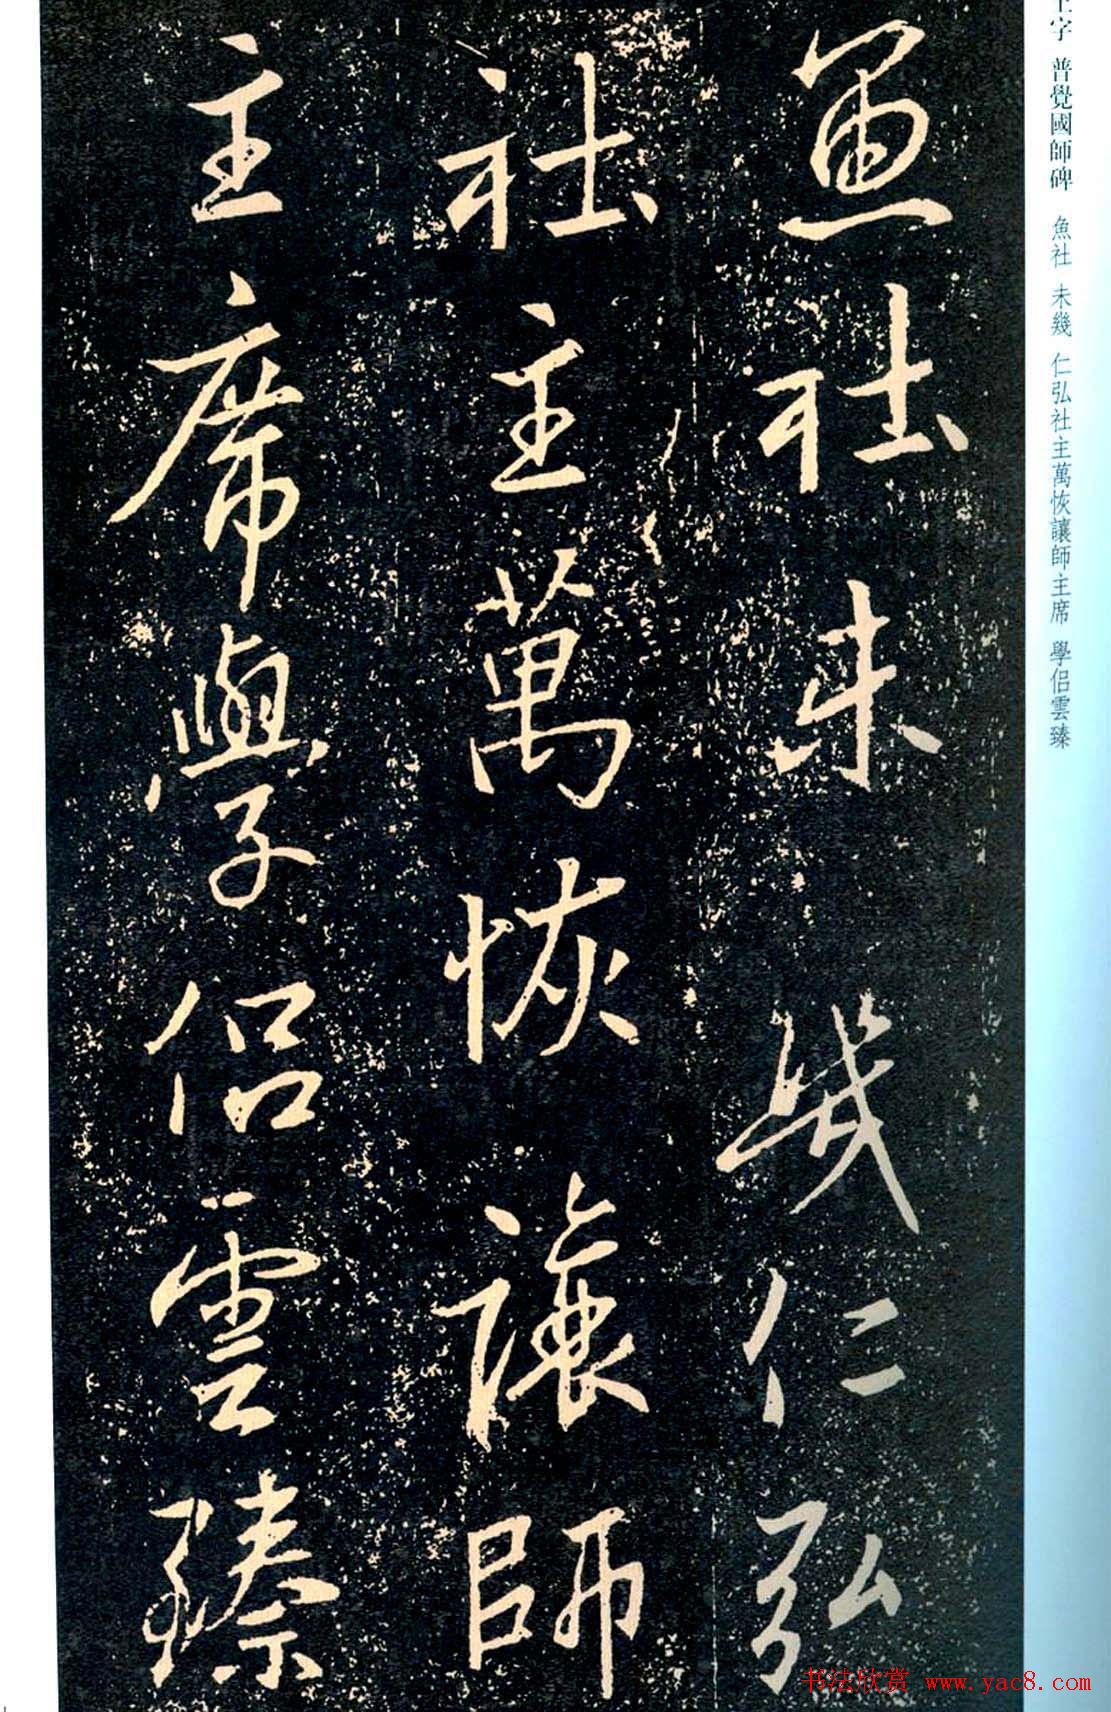 魚社未幾仁弘
社主萬恢讓師
主席與學侶雲臻
王字 普覺國師碑 魚社 未幾 仁弘社主萬恢讓師主席 學侶雲臻
书法欣赏 www.yac8.com